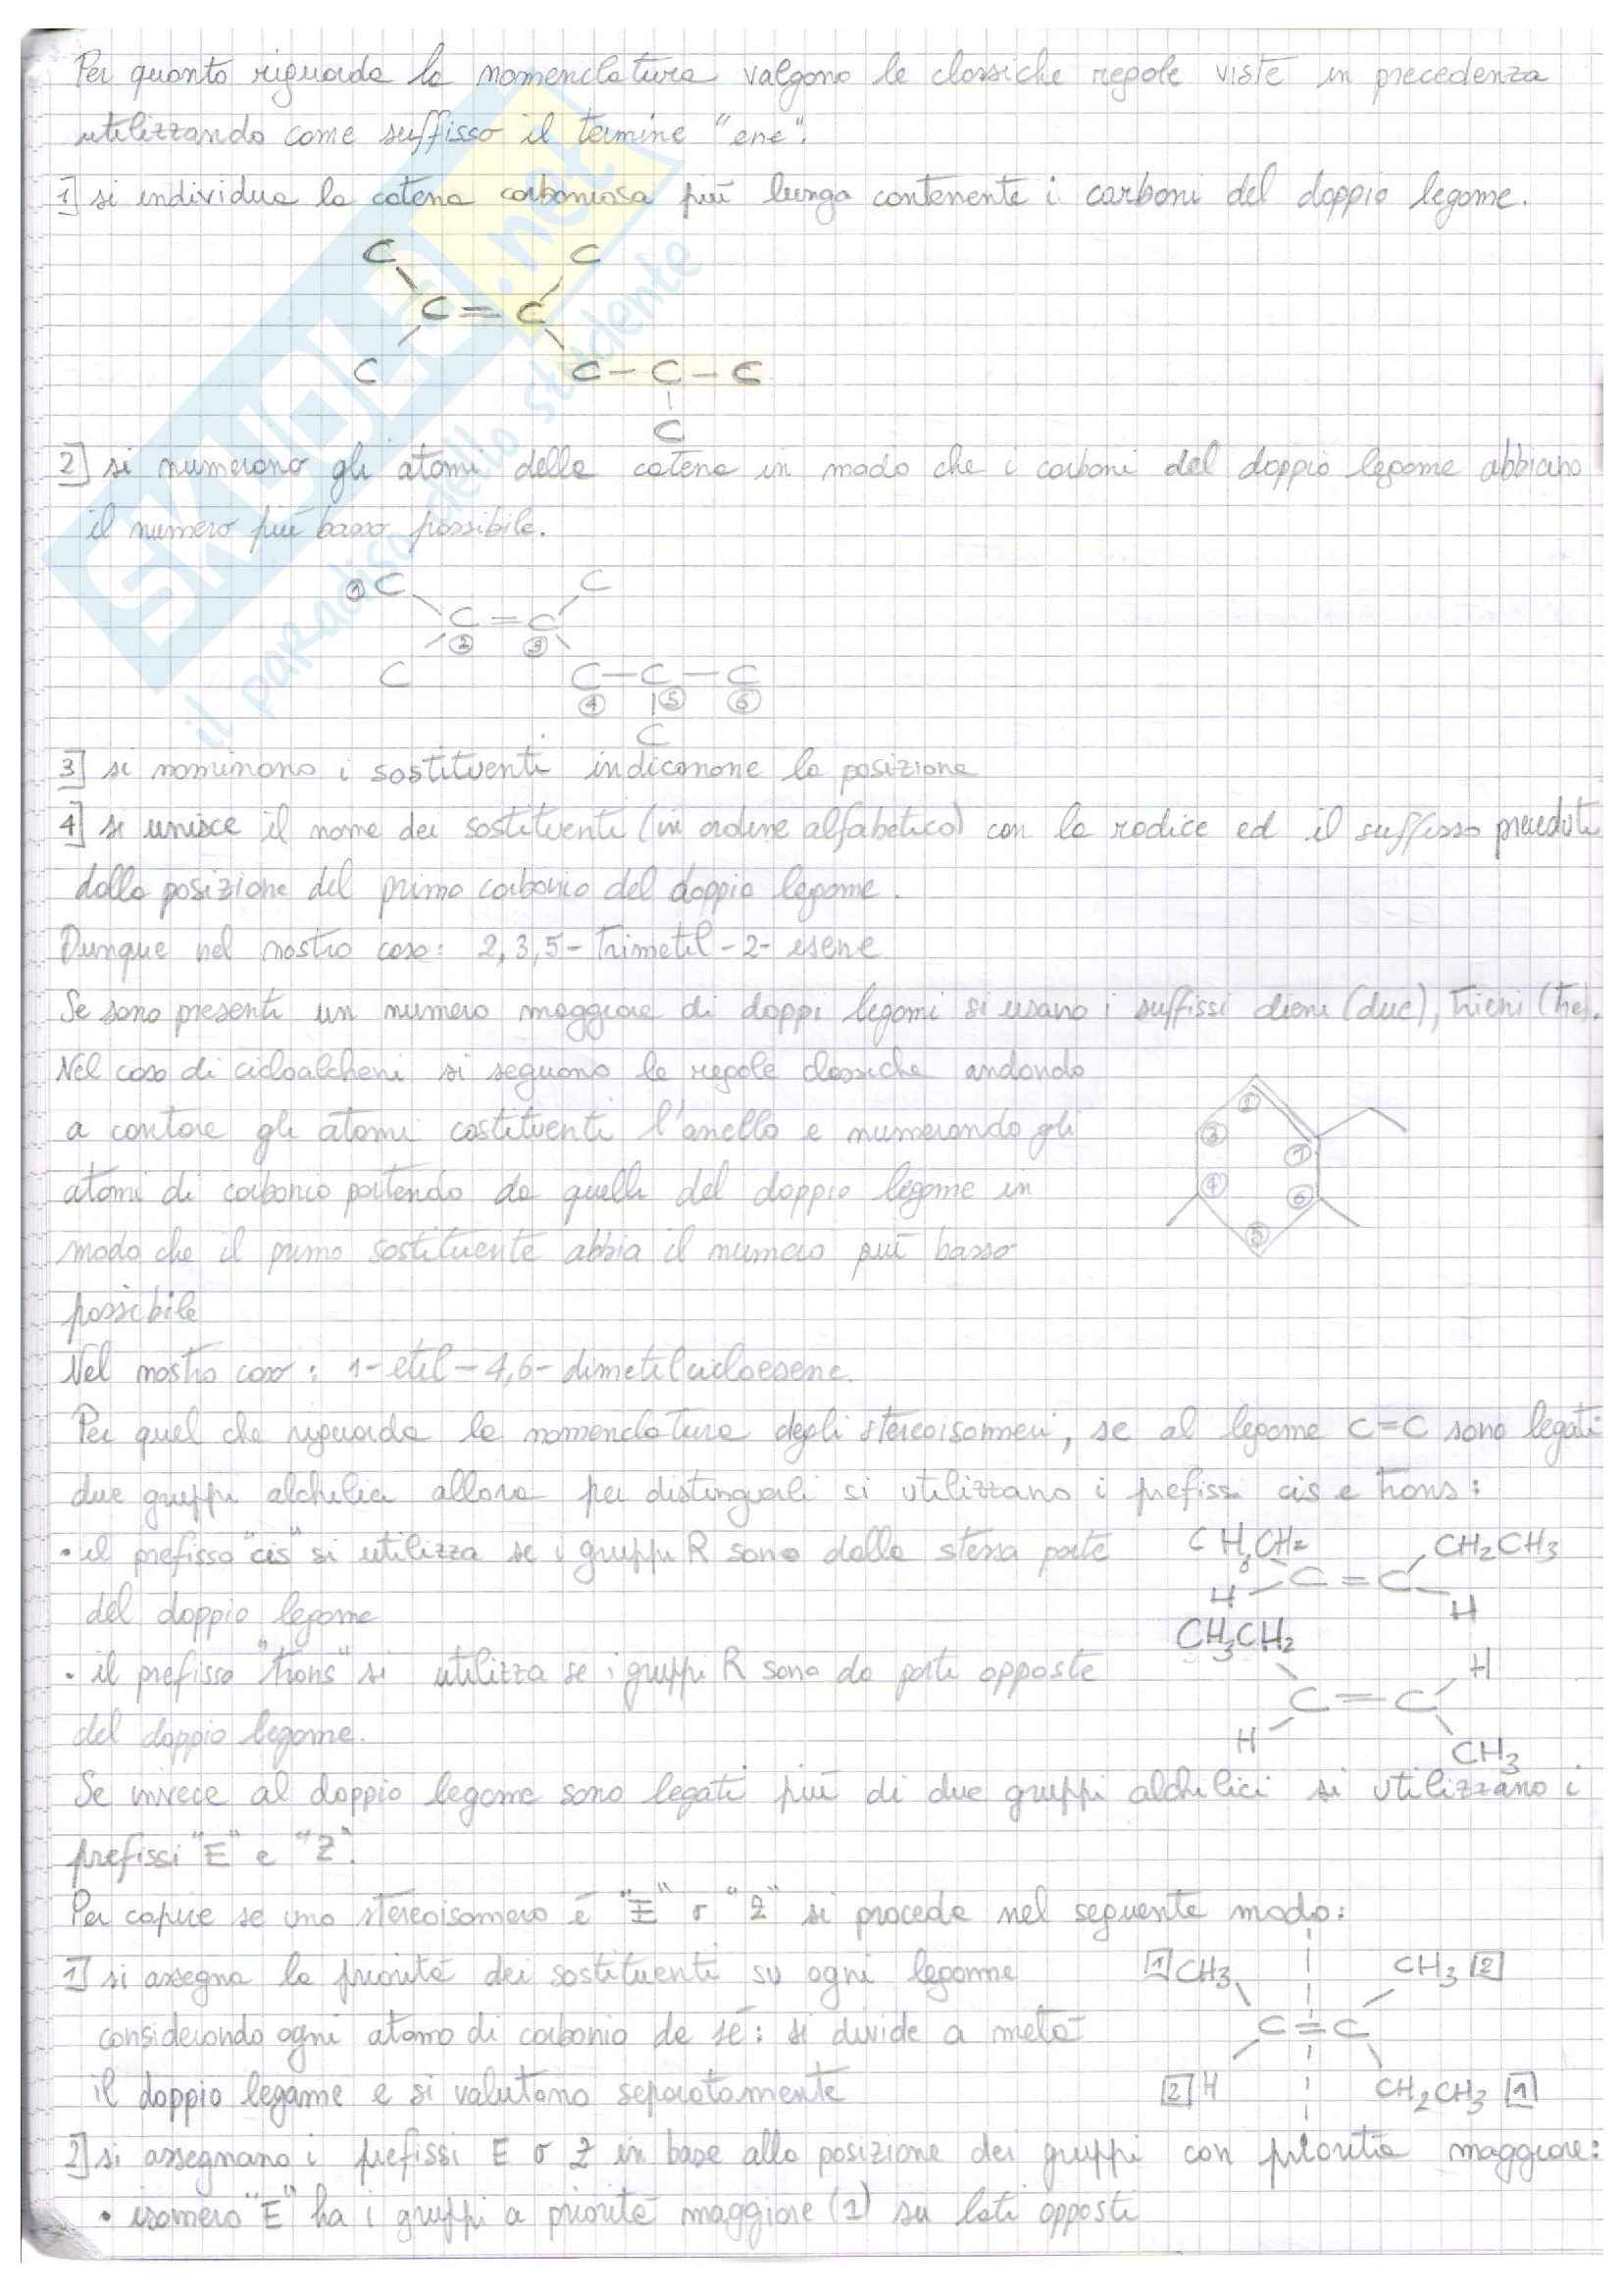 Per quanto riguarda la nomenclatura valgono le classiche regole viste in precedenza
utilizzando come suffisso il termine "ene".
1] si individua la catena carboniosa più lunga contenente i carboni del doppio legome.
C C
C = C
C C - C - C
C
2] si numerano gli atomi della catena in modo che i carboni del doppio legame abbiano
il numero più basso possibile.
① C C
C = C
② ③
C C - C - C
④ ⑤ ⑥
C
3] si nominano i sostituenti indicanone la posizione
4] si unisce il nome dei sostituenti (in ordine alfabetico) con la radice ed il suffisso preceduti
dalla posizione del primo carbonio del doppio legame.
Dunque nel nostro caso: 2,3,5-trimetil-2-esene
Se sono presenti un numero maggiore di doppi legami si usano i suffissi dieni (due), trieni (tre).
Nel caso di cicloalcheni si seguono le regole classiche andando
a contare gli atomi costituenti l'anello e numerando gli
atomi di carbonio partendo da quelli del doppio legame in
modo che il primo sostituente abbia il numero più basso
possibile
② ③ ① ④ ⑥ ⑤
Nel nostro caso: 1-etil-4,6-dimetilcicloesene.
Per quel che riguarda la nomenclatura degli stereoisomeri, se al legame C=C sono legati
due gruppi alchilici allora per distinguerli si utilizzano i prefissi cis e trans:
• il prefisso "cis" si utilizza se i gruppi R sono dalla stessa parte
del doppio legame
CH3CH2 CH2CH3
C = C
H H
• il prefisso "trans" si utilizza se i gruppi R sono da parti opposte
del doppio legame.
CH3CH2 H
C = C
H CH3
Se invece al doppio legame sono legati più di due gruppi alchilici si utilizzano i
prefissi "E" e "Z".
Per capire se uno stereoisomero è "E" o "Z" si procede nel seguente modo:
1] si assegna la priorità dei sostituenti su ogni legame
considerando ogni atomo di carbonio da sé: si divide a metà
il doppio legame e si valutano separatamente
1 CH3 CH3 2
C = C
2 H CH2CH3 1
2] si assegnano i prefissi E o Z in base alla posizione dei gruppi con priorità maggiore:
• isomero "E" ha i gruppi a priorità maggiore (1) su lati opposti
SKUOLA.net
il paradiso dello studente